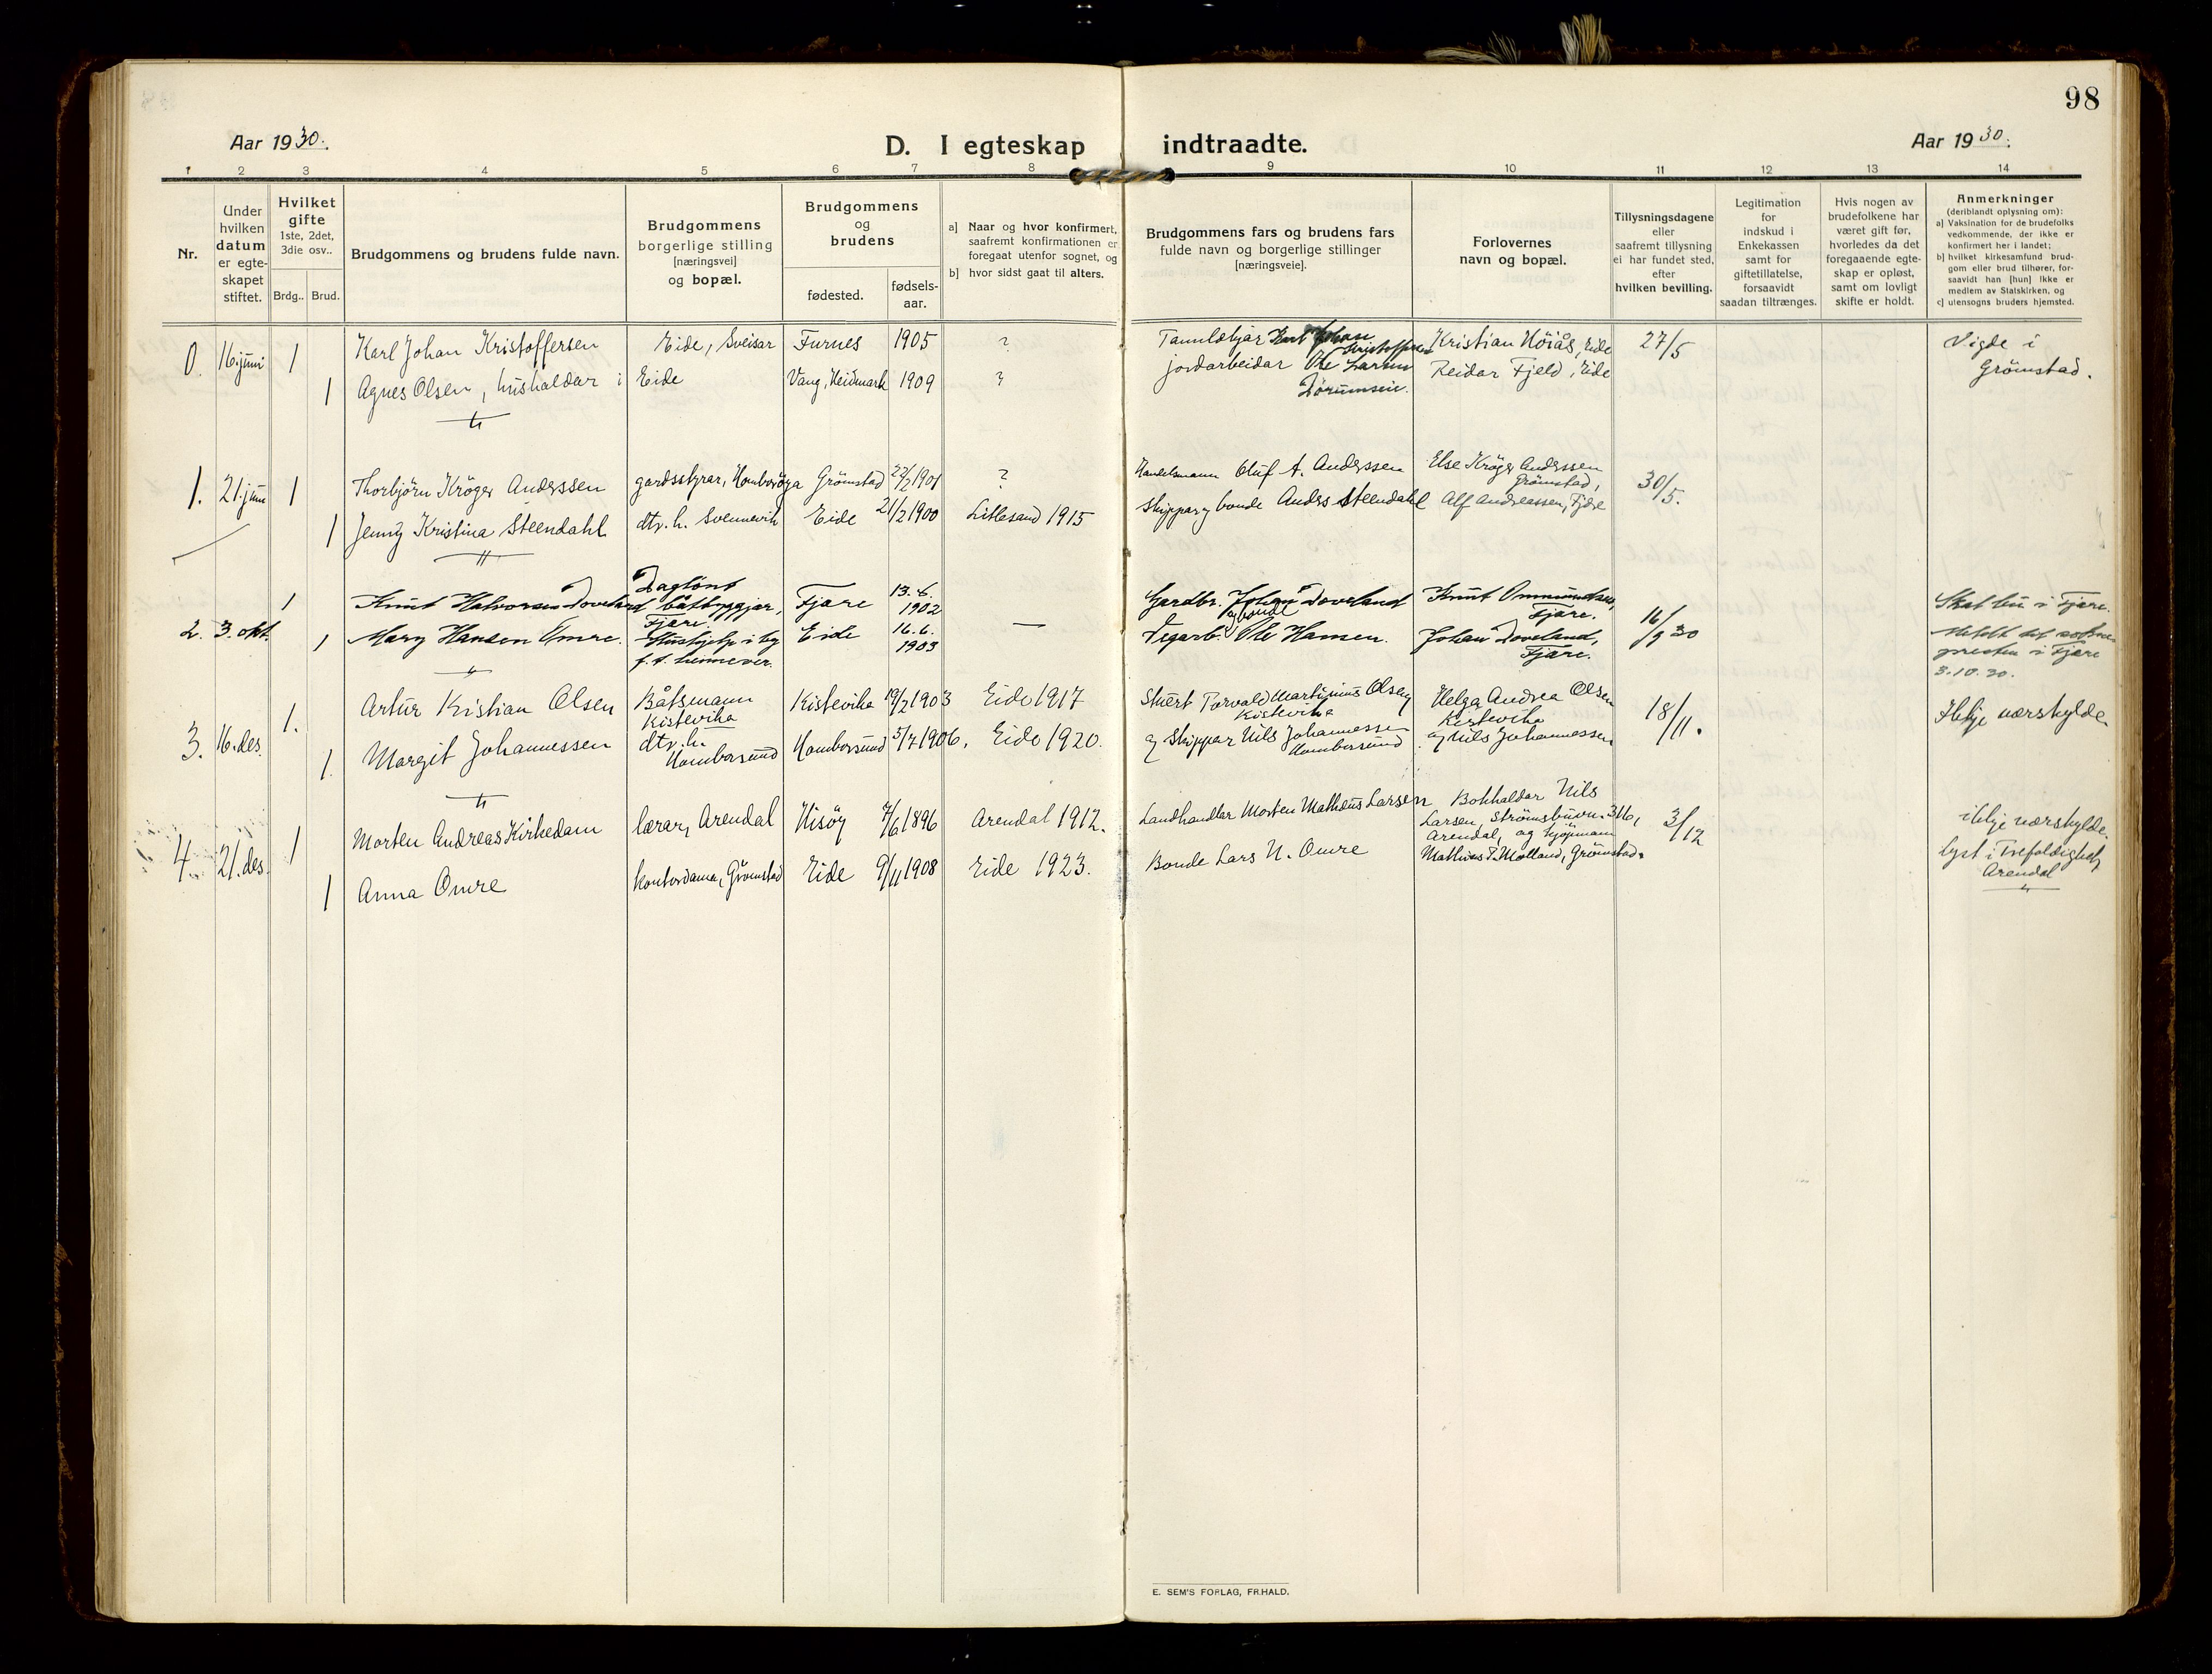 98
Aar 1930.
D. I egteskap indtraadte.
Aar 1930.
1 2 3 4 5 6 7 8 9 10 11 12 13 14
Nr.
Under
hvilken
datum
er egte-
skapet
stiftet.
Hvilket
gifte
1ste, 2det,
3die osv..
Brdg.. Brud.
Brudgommens og brudens fulde navn.
Brudgommens
borgerlige stilling
[næringsvei]
og bopæl.
Brudgommens
og
brudens
fødested.
fødsels-
aar.
a] Naar og hvor konfirmert,
saafremt konfirmationen er
foregaat utenfor sognet, og
b] hvor sidst gaat til alters.
Brudgommens fars og brudens fars
fulde navn og borgerlige stillinger
[næringsveie].
Forlovernes
navn og bopæl.
Tillysningsdagene
eller
saafremt tillysning
ei har fundet sted,
efter
hvilken bevilling.
Legitimation
for
indskud i
Enkekassen
samt for
giftetillatelse,
forsaavidt
saadan tiltrænges.
Hvis nogen av
brudefolkene har
været gift før,
hvorledes da det
foregaaende egte-
skap er opløst,
samt om lovligt
skifte er holdt.
Anmerkninger
(deriblandt oplysning om):
a) Vaksination for de brudefolks
vedkommende, der ikke er
konfirmert her i landet;
b) hvilket kirkesamfund brud-
gom eller brud tilhører, for-
saavidt han [hun] ikke er
medlem av Statskirken, og
c) utensogns bruders hjemsted.
0. 16.juni 1 Karl Johan Kristoffersen Eide, Sveisar Furnes 1905 ? Karl Johan Kristoffersen Kristian Höiås, Eide 27/5 Vigde i
1 Agnes Olsen, hushaldar i Eide Vang, Heidmark 1909 ? jordarbeidar Ole Larsen Reidar Fjeld, Eide Grömstad.
1. 21.juni 1 Thorbjörn Kröger Anderssen gardsstyrar, Homboröya Grömstad 22/2 1901 ? Handelsmann Oluf A. Anderssen Else Kröger Anderssen
Grömstad, 30/5.
1 Jenny Kristina Steendahl dtr. h. Svennevik Eide 21/2 1900 Lillesand 1915 Skippar og bonde Anders Steendahl Alf Andreassen, Fjære
2. 3. okt. 1 Knut Halvorsen Doveland Daglönt
båtbyggjar,
Fjære. Fjære 13.6.
1902 Gardbr. Johan Doveland Knut Ommundsen,
Fjære. 16/9 30 Skal bu i Fjære.
1 Mary Hansen Omre. Hushjelp i by
f. t. heimever. Eide 16.6.
1903 — Ole Hansen. Johan Doveland,
Fjære. Meldt til sokne-
presten i Fjære
3.10.30.
3. 16.des. 1. Artur Kristian Olsen Båtsmann
Kistevika Kistevika 19/2 1903 Eide 1917 Stuert Torvald Martinius Olsen
Kistevika Helga Andrea Olsen
Kistevika 18/11. Ikkje værskylde
1. Margit Johannessen dtr. h.
Homborsund Homborsund 5/7 1906. Eide 1920. og Skippar Nils Johannessen
Homborsund og Nils Johannessen
4. 21.des. 1 Morten Andreas Kirkedam lærar, Arendal Hisöy 7/6 1896 Arendal 1912. Landhandlar Morten Mathæus Larsen Bokhaldar Nils
Larsen, Strömsbuvn. 346,
Arendal, og kjöpmann
Mathias T. Molland, Grömstad. 3/12 ikkje værskylde.
lyst i Trefoldighets
Arendal
1 Anna Omre kontordama, Grömstad Eide 9/11 1908 Eide 1923. Bonde Lars N. Omre
E. SEM'S FORLAG, FR.HALD.